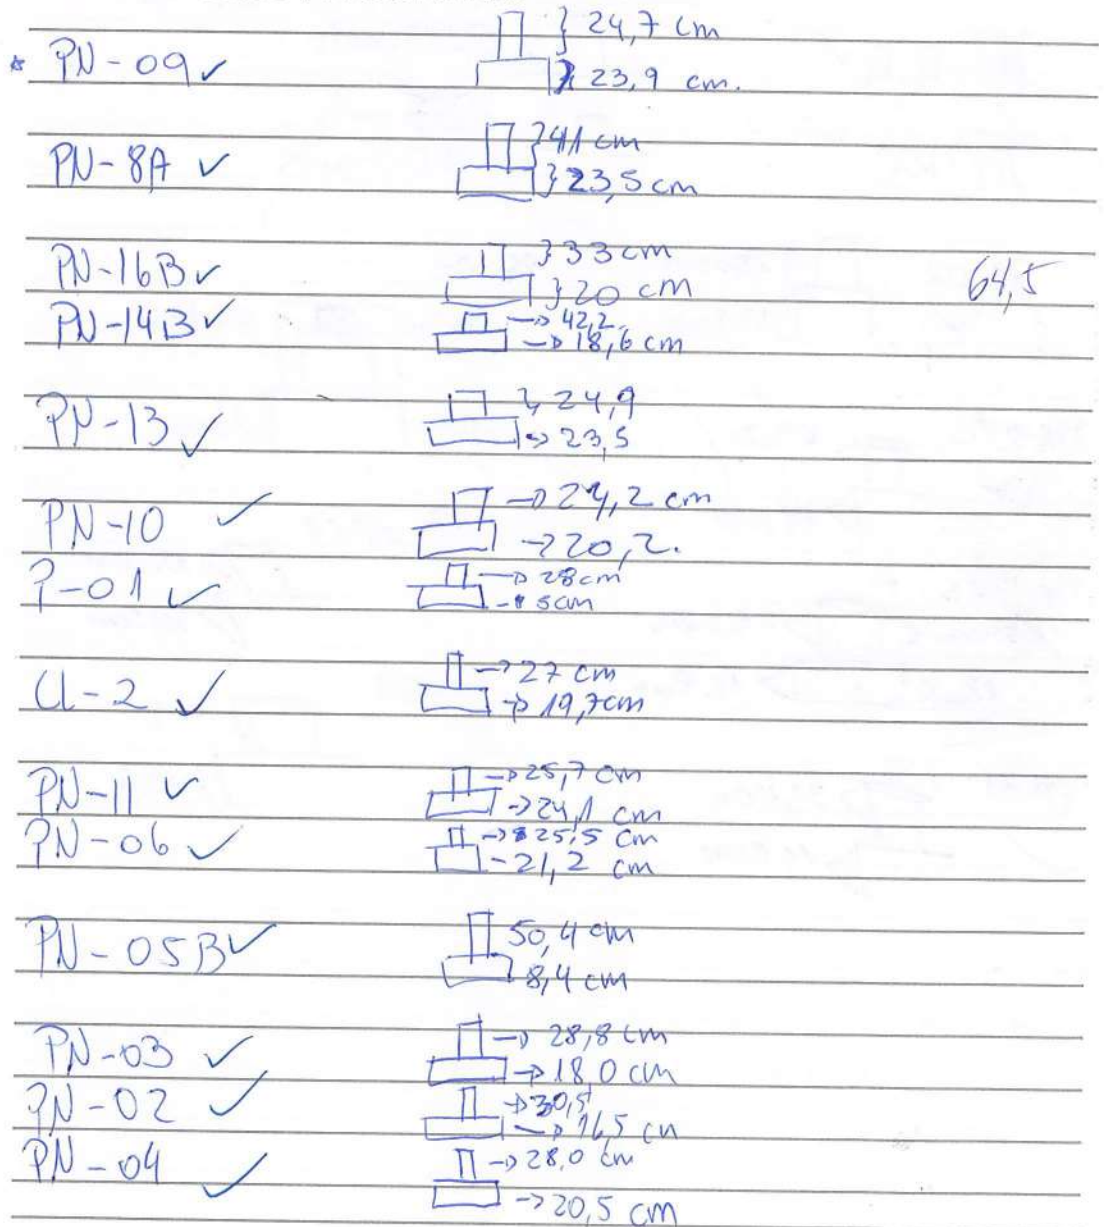 24,7 cm
* PN-09 ✓
23,9 cm.
41 cm
PN-8A ✓
23,5 cm
PN-16B ✓ 33 cm
20 cm 64,5
PN-14B ✓ → 42,2.
→ 18,6 cm
PN-13 ✓ 24,9
→ 23,5
PN-10 ✓ → 24,2 cm
→ 20,2.
P-01 ✓ → 28cm
5cm
CL-2 ✓ → 27 cm
→ 19,7cm
PN-11 ✓ → 25,7 cm
→ 24,1 cm
PN-06 ✓ → 25,5 cm
- 21,2 cm
PN-05B ✓ 50,4 cm
8,4 cm
PN-03 ✓ → 28,8 cm
→ 18,0 cm
PN-02 ✓ → 30,5
→ 16,5 cm
PN-04 ✓ → 28,0 cm
→ 20,5 cm